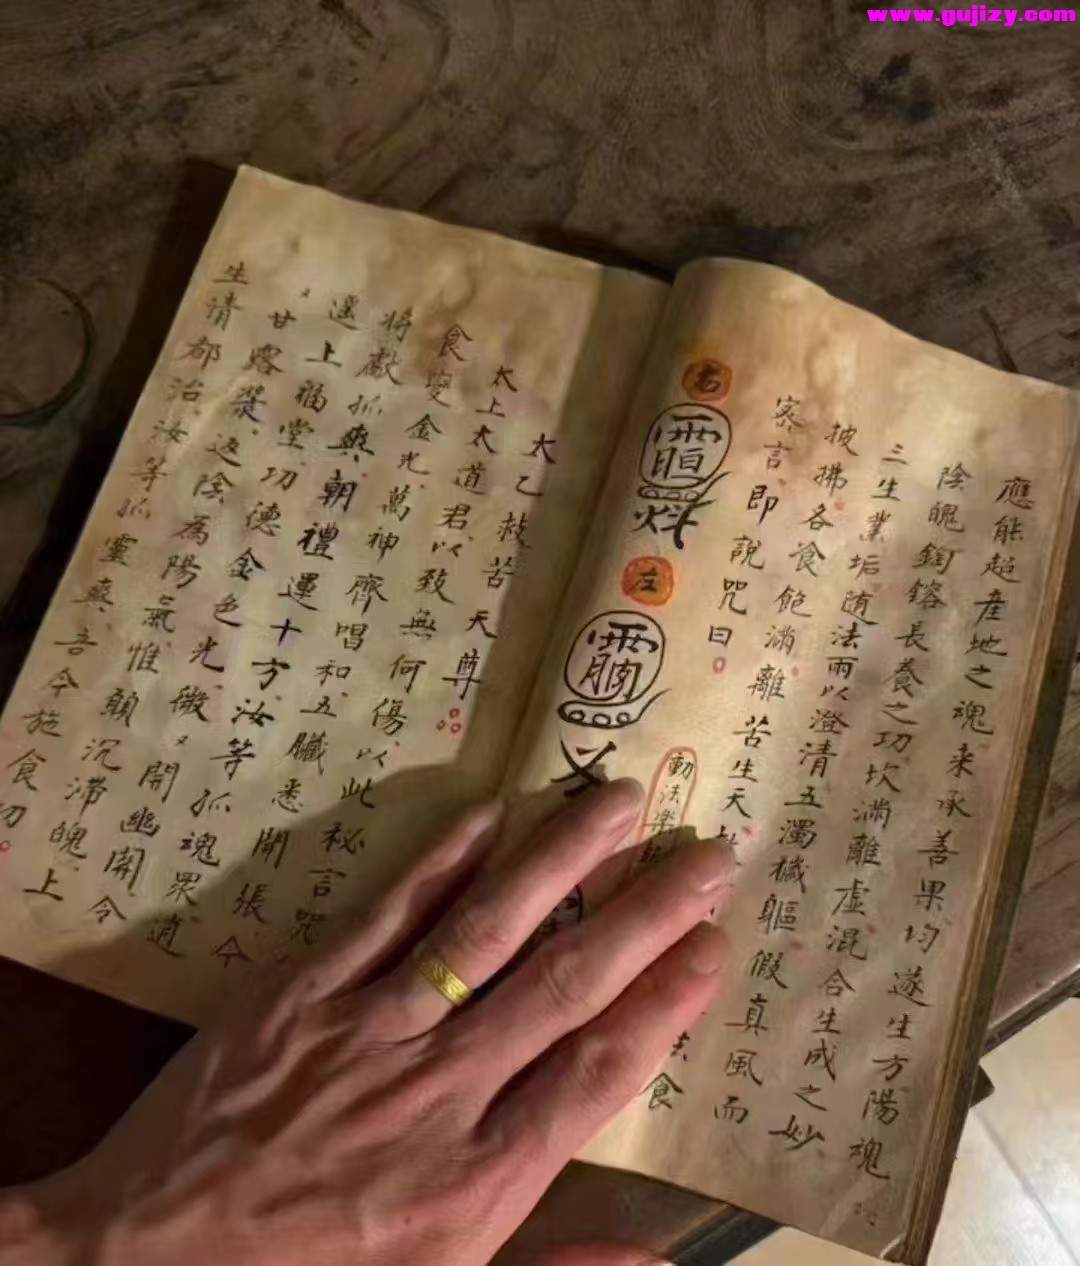 應能超産地之魂来承善果均遂生方陽魂
陰魄鎔長養之功坎滿離虚混合生成之妙
三生業垢随法雨以澄清五濁穢軀假真風而
披拂各食飽滿離苦生天法食
密言即說咒曰
動法樂
右
左
太乙救苦天尊
太上太道君以致無何傷以此秘言咒
食變金光萬神齊唱和五臟悉開張今
將獻孤與朝禮運十方汝等孤魂眾逍
選上福堂功德金色光微〻開幽開今
〻甘露漿返陰為陽氣惟願沉滯魄上
生清都治汝等孤靈吾今施食切
www.gujizy.com